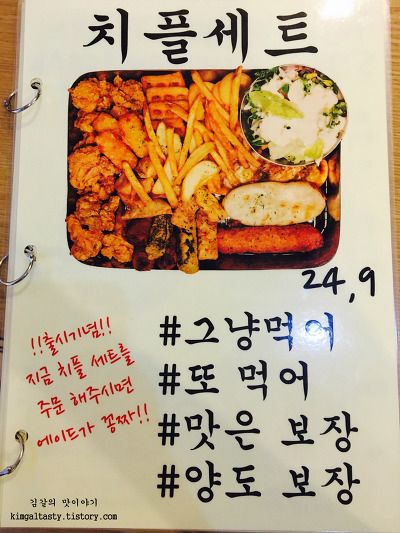 치플세트
24,9
!!출시기념!!
지금 치플 세트를
주문 해주시면
에이드가 꽁짜!!
#그냥먹어
#또 먹어
#맛은 보장
#양도 보장
김갈의 맛이야기
kimgaltasty.tistory.com